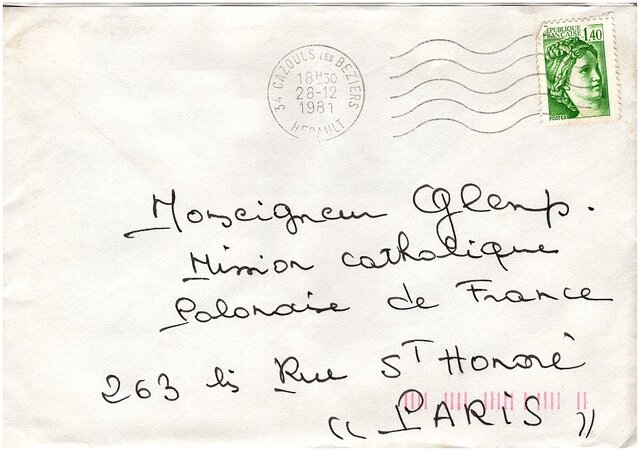 34 CAZOULS LES BEZIERS
18H30
28-12
1981
HERAULT
REPUBLIQUE
FRANCAISE
1,40
POSTES
Monseigneur Glemp.
Mission catholique
Polonaise de France
263 bis Rue ST Honoré
(( PARIS ))